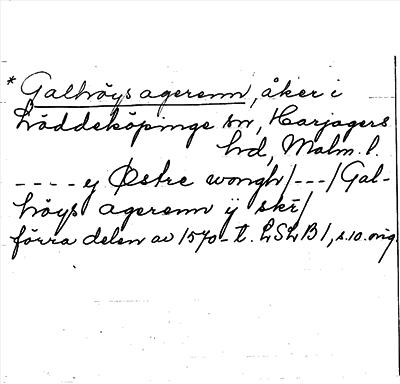 * Galhöys agerenn, åker i
Löddeköpinge sn, Harjagers
hd, Malm. l.
---- ey Østre wongh/---/Gal-
höys agerenn ij skr/
förra delen av 1570-t. LSLB 1, s. 10. orig.